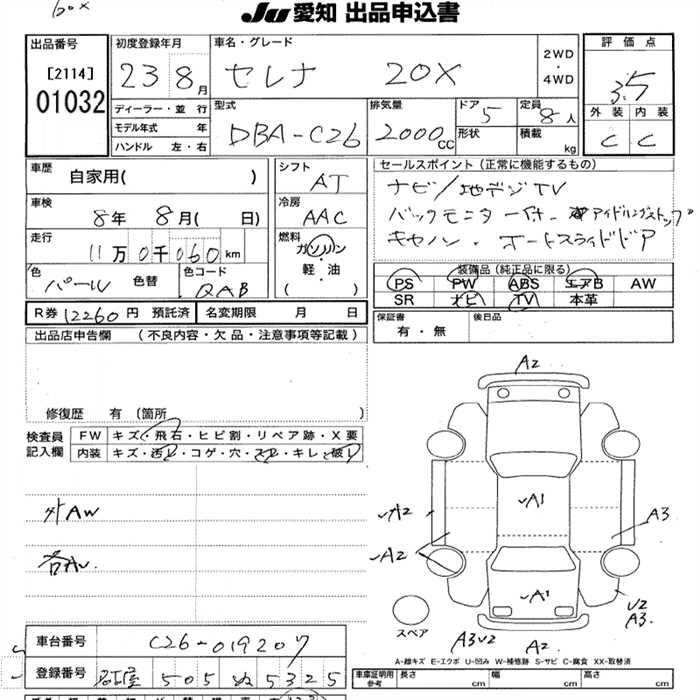 60x
Ju 愛知 出品申込書
出品番号
[2114]
01032
初度登録年月
23 8月
ディーラー・並 行
モデル年式 年
ハンドル 左・右
車名・グレード
セレナ 20X
2WD
・
4WD
型式
DBA-C26
排気量
2000 CC
ドア 5
形状
定員 8 人
積載 kg
評価点
3.5
外装 内装
C C
車歴
自家用( )
車検
8年 8月( 日)
走行
11万 0千 060 km
色 パール 色替
色コード
QAB
シフト
AT
冷房
AAC
燃料
ガソリン
・
軽・油
( )
セールスポイント(正常に機能するもの)
ナビ/地デジTV
バックモニター付 アイドリングストップ
キャノン・オートスライドドア
装備品(純正品に限る)
PS PW ABS エアB AW
SR ナビ TV 本革
R券 12260 円 預託済 名変期限 月 日
保証書
有・無
後日品
出品店申告欄 (不良内容・欠品・注意事項等記載)
修復歴 有 (箇所 )
検査員
記入欄
FW キズ・飛石・ヒビ割・リペア跡・X要
内装 キズ・汚レ・コゲ・穴・スレ・キレ・破レ
外AW
各AU
A2
A1
A2
A2
A3
A1
U2
A3
A3U2
A2
スペア
A-線キズ E-エクボ U-凹み W-補修跡 S-サビ C-腐食 XX-取替済
車台番号 C26-019207
登録番号 名古屋 505 ぬ 5325
車庫証明用
参考
長さ cm
幅 cm
高さ cm